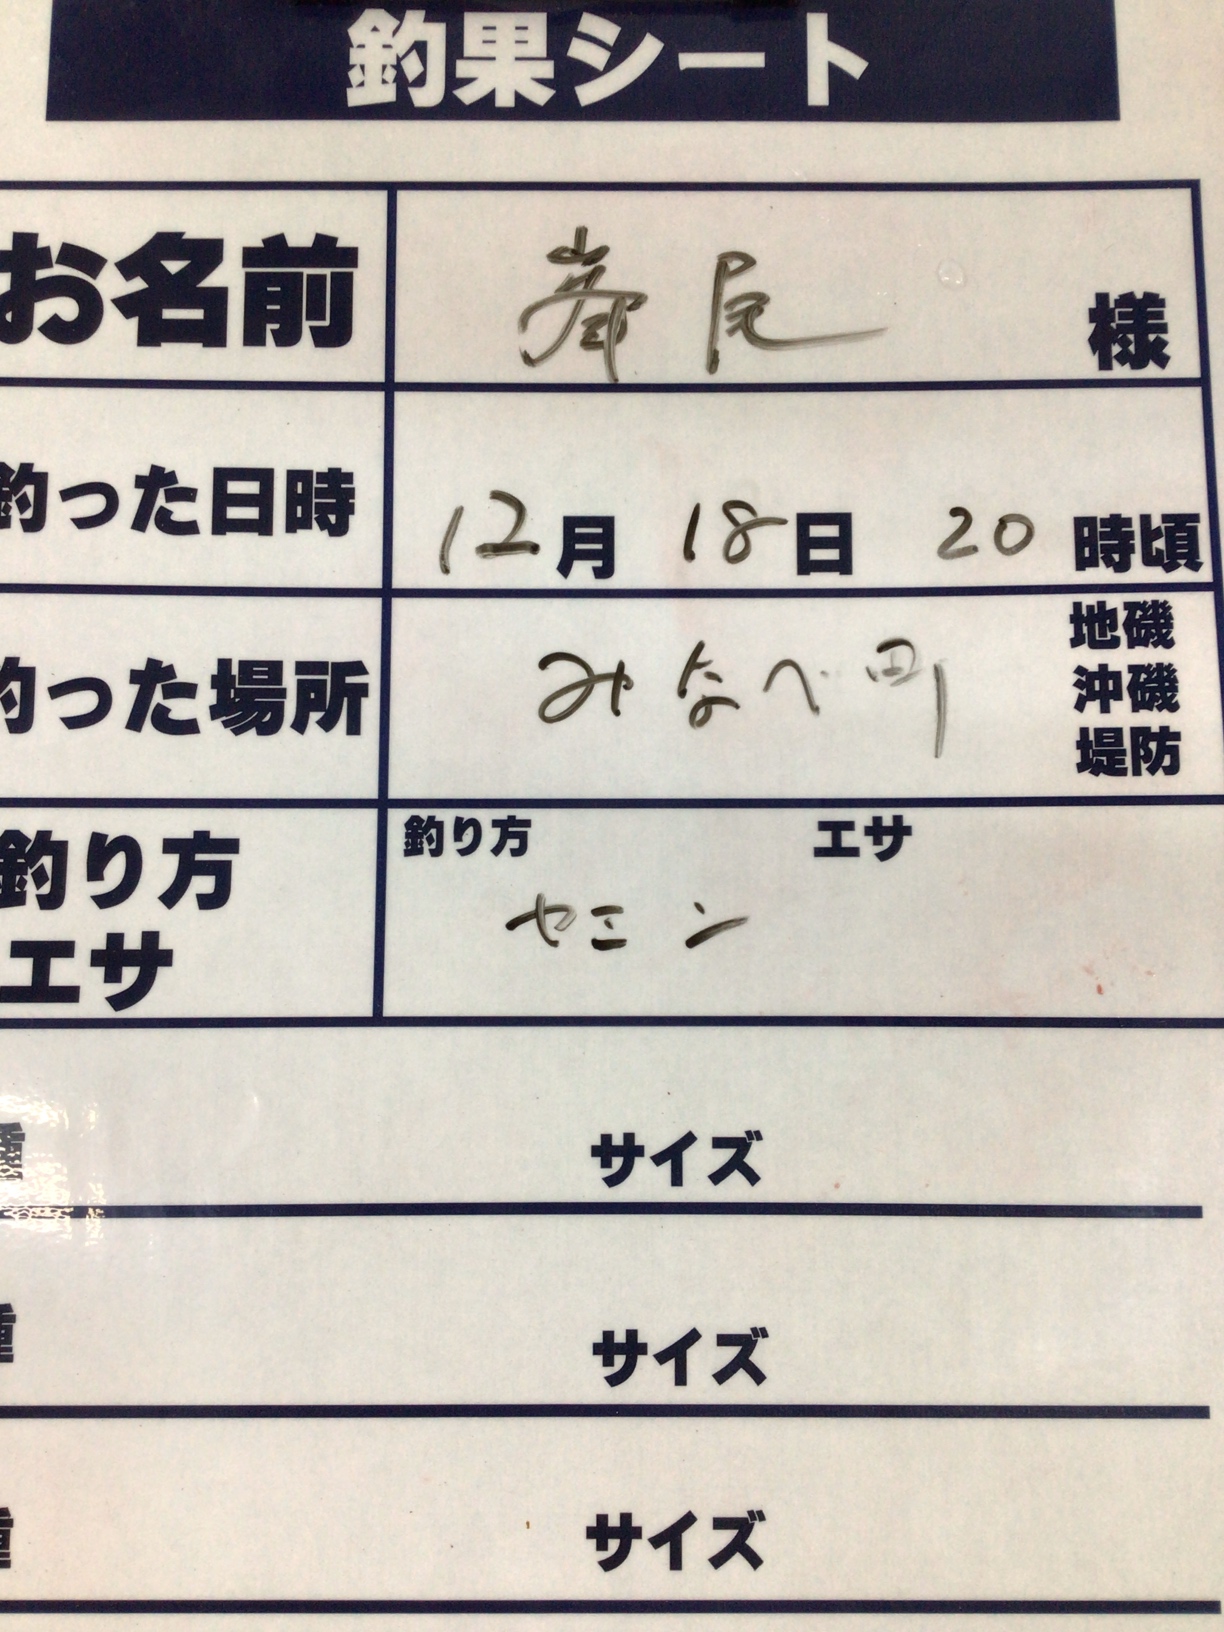 釣果シート
お名前 様
釣った日時 12月 18日 20時頃
釣った場所 みなべ町 地磯
沖磯
堤防
釣り方 釣り方 エサ
エサ セミン
種 サイズ
種 サイズ
種 サイズ